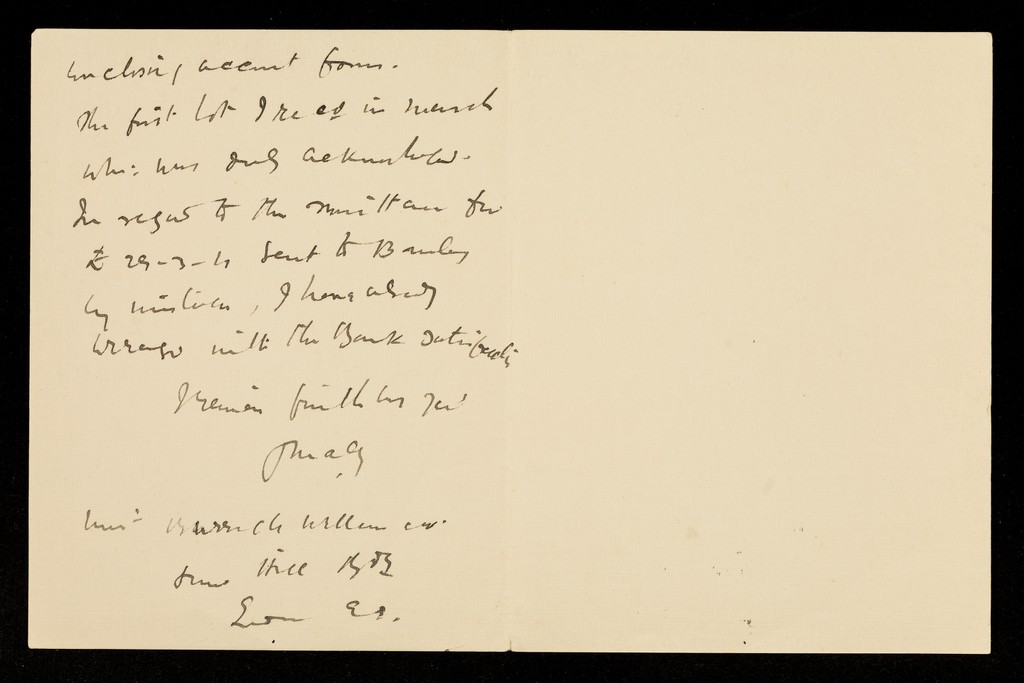 enclosing account forms.
The first lot I recd in March
which was duly acknowledged.
In regard to the remittance for
£ 29-3-11 sent to Barclays
by mistake, I have already
arranged with the Bank satisfactorily
I remain faithfully yours
Messrs Burroughs Wellcome &Co.
Snow Hill Bldgs
London E.C.